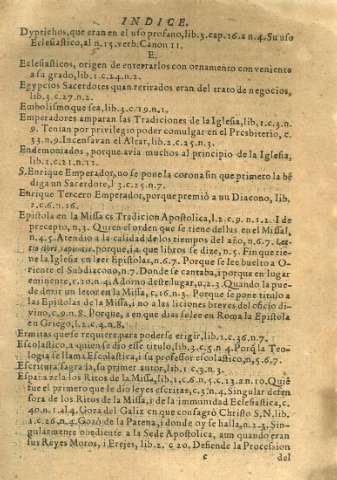 INDICE.
Dyptichos, que eran en el uso profano, lib.3.cap.16.a n.4. Su uso
Eclesiastico, al n.15.verb. Canon 11.
E.
Eclesiasticos, origen de enterrarlos con ornamento conveniente
a su grado, lib.1.c.24.n.2.
Egypcios Sacerdotes quan retirados eran del trato de negocios,
lib.3.c.27.n.2.
Embolismo que sea, lib.3.c.19.n.1.
Emperadores amparan las Tradiciones de la Iglesia, lib.1.c.3.n
9. Tenian por privilegio poder comulgar en el Presbiterio, c.
33.n.9. Incensavan el Altar, lib.2.c.25.n.3.
Endemoniados, porque avia muchos al principio de la Iglesia,
lib.1.c.21.n.11.
S. Enrique Emperador, no se pone la corona sin que primero la bē
diga un Sacerdote, l.3.c.25.n.7.
Enrique Tercero Emperador, porque premiò a su Diacono, lib.
1.c.6.n.16.
Epistola en la Missa es Tradicion Apostolica, l.2.c.9.n.1.2. I de
precepto, n.3. Quien el orden que se tiene dellas en el Missal,
n.4.5. Atendio a la calidad de los tiempos del año, n.6.7. Lec-
tio libri sapientiæ, porque, i a que libros se dize, n.5. Fin que tie-
ne la Iglesia en leer Epistolas, n.6.7. Porque se lee buelto a O-
riente el Subdiacono, n.7. Donde se cantaba, i porque en lugar
eminente, c.10.n.4. Adorno deste lugar, n.2.3. Quando la pue-
de dezir un letor en la Missa, c.16.n.3. Porque se pone titulo a
las Epistolas de la Missa, i no a las liciones breves del oficio di-
vino, c.9.n.8. Porque, i a en que dias se lee en Roma la Epistola
en Griego, l.2.c.4.n.8.
Ermitas que se requiere para poderse erigir, lib.1.c.36.n.7.
Escolastico, a quien se dio esse titulo, lib.3.c.5.n 4. Porq̄ la Teo-
logia se llama Escolastica, i su profesor escolastico, n.5.6.7.
Escritura sagrada, su primer autor, lib.1 c.3.n.3.
España zela los Ritos de la Missa, lib.1.c.6.n.5.c.13.a n.10. Quiē
fue el primero que le dio leyes escritas, c.3.n.4. Singular defen
sora de los Ritos de la Missa, i de la immunidad Eclesiastica, c.
40.n.1.al 4. Goza del Caliz en que consagrò Christo S.N. lib.
1.c.26.n.4. Gozò de la Patena, i donde oy se halla, n.2.3. Sin-
gularmente obediente a la Sede Apostolica, aun quando eran
sus Reyes Moros, i Erejes, lib.2. c 20. Defiende la Procession
c del